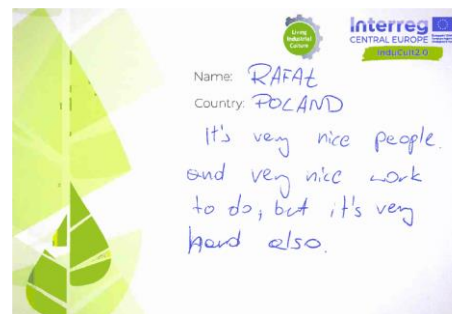 Living
Industrial
Culture
Interreg
CENTRAL EUROPE
InduCult2.0
Name: RAFAŁ
Country: POLAND
It's very nice people.
and very nice work
to do, but it's very
hard also.